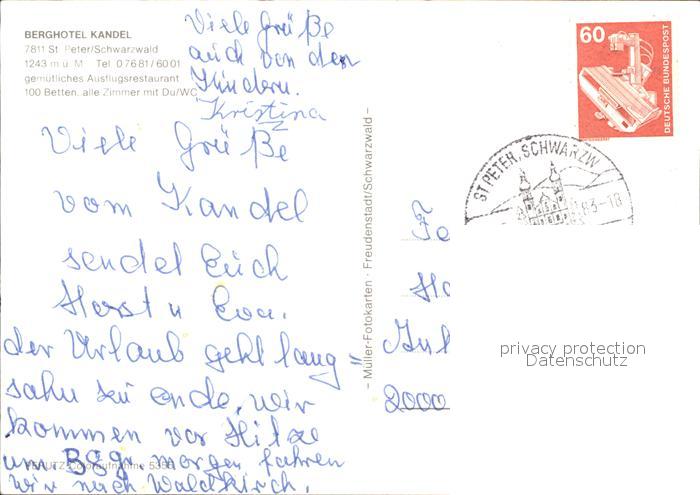 BERGHOTEL KANDEL
7811 St. Peter/Schwarzwald
1243 m ü. M. Tel. 07681/6001
gemütliches Ausflugsrestaurant
100 Betten, alle Zimmer mit Du/WC
Viele Grüße
auch von den
Kindern.
Kristina
Viele Grüße
vom Kandel
sendet Euch
Horst u Eva.
der Urlaub geht lang=
sahm zu ende, wir
kommen vor Hitze
um morgen fahren
wir nach Waldkirch.
– Müller-Fotokarten · Freudenstadt/Schwarzwald –
60
DEUTSCHE BUNDESPOST
ST PETER, SCHWARZW
83-18
Fe
Ho
2000
privacy protection
Datenschutz